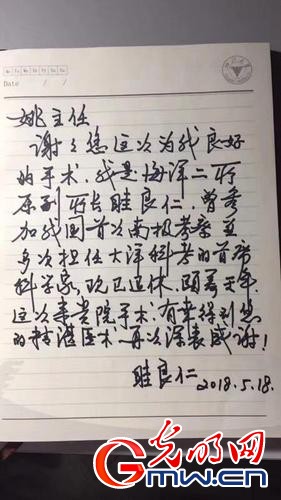 Mo Tu We Th Fr Sa Su
Date / /
姚主任
谢々您这次为我良好
的手术，我是海洋二所
原副所长眭良仁，曾参
加我国首次南极考察並
多次担任大洋科考的首席
科学家，现已退休，颐养天年。
这次来贵院手术，有幸得到您
的精湛医术，再次深表感谢！
眭良仁 2018.5.18.
光明网
GMW.cn